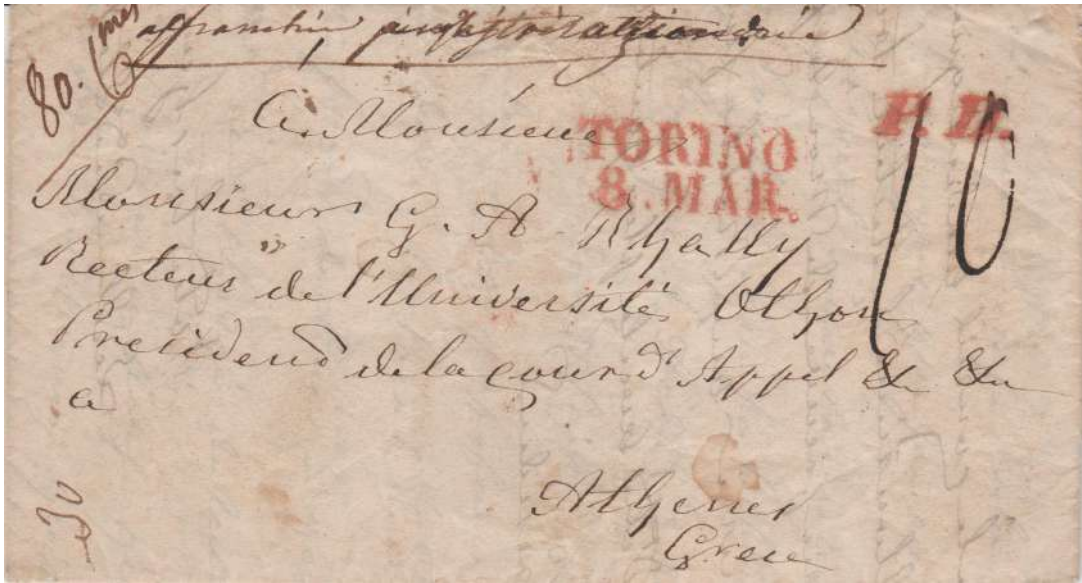 80. Cmes
affranchie
A Monsieur
TORINO
8. MAR.
P. D.
10
Monsieur G. A. Rhally
Recteur de l'Université Othon
President de la cour d'Appel & &
a
Athenes
Grece